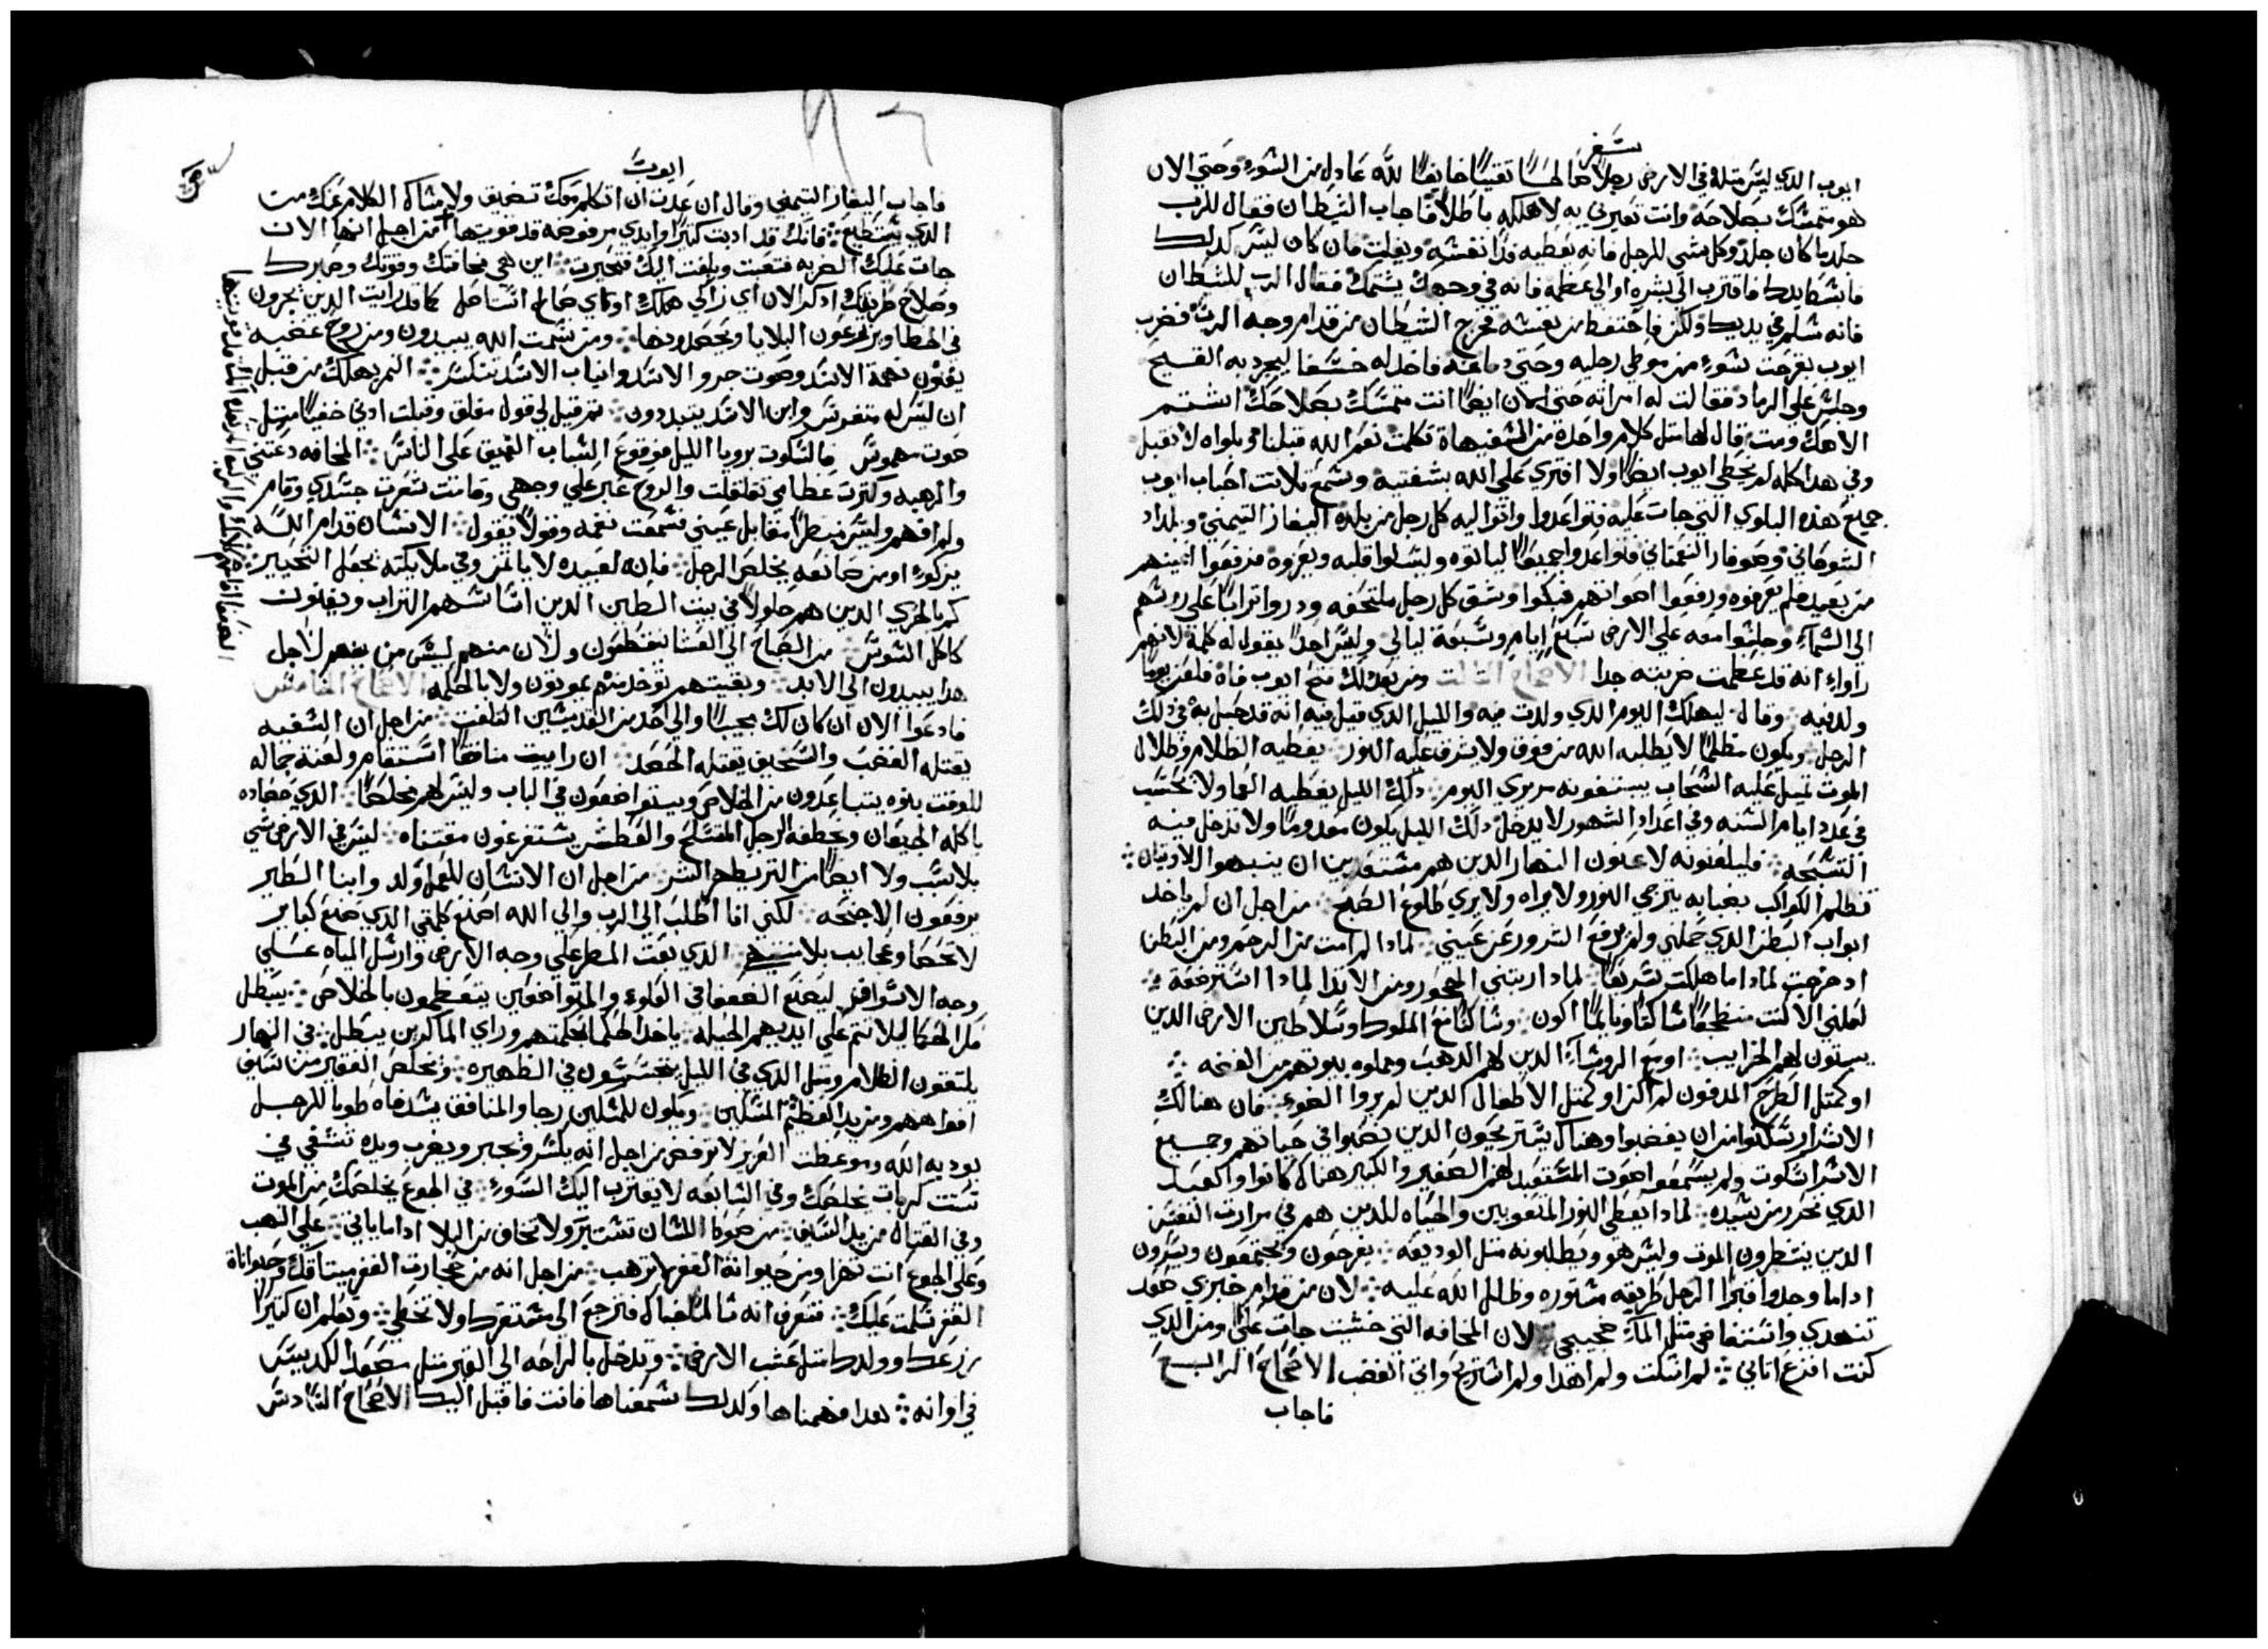 سفر
ايوب الدي ليس متله في الارض رجلاً صالحاً تقياً خايفاً لله عادل من السوء وحتي الان
هو متمسك بصلاحه وانت تغيرني به لاهلكه باطلاً فاجاب الشيطان فقال للرب
جلد ما كان جلد وكل شي للرجل فانه يعطيه فدا نفسه ويفلت فان كان ليس كدلك
فابسط يدك فاقترب الي بشره او الي عظمه فانه في وجهك يشتمك فقال الرب للشيطان
فانه سلم في يديك ولكن فاحتفظ من نفسه فخرج الشيطان من قدام وجه الرب فضرب
ايوب بقرحت سوء من موطي رجليه وحتي دماغه فاخد له خسفا ليجرد به القيح
وجلس علي الرماد فقالت له امراته حتي الان ايضاً انت متمسك بصلاحك اشتم
الاهك ومت قال لها متل كلام واحدة من السفيهاة تكلمت نعم الله قبلنا وبلواه لا نقبل
وفي هدا كله لم يخطي ايوب ايضاً ولا افتري علي الله بشفتيه وسمع تلاتت احباب ايوب
جميع هده البلوي التي جات عليه فتواعدوا واتوا اليه كل رجل من بلده اليفاز التيمني وبلداد
الشوحاني وصوفار النعماني فتواعدوا جميعاً لياتوه وليسلوا قلبه ويعزوه فرفعوا اعينهم
من بعيد فلم يعرفوه ورفعوا اصواتهم فبكوا وشق كل رجل ملتحفه ودروا تراباً علي روسهم
الي السماء وجلسوا معه علي الارض سبع ايام وسبعة ليالي وليس احداً يقول له كلمة لانهم
راواء انه قد عظمت ضربته جدا الاصحاح التالت ومن بعد دلك فتح ايوب فاه فلعن يوماً
ولد فيه وقال ليهلك اليوم الدي ولدت فيه والليل الدي قيل فيه انه قد حبل به في دلك
الرجل ويكون مظلماً لا يطلبه الله من فوق ولا يشرق عليه النور يغطيه الظلام وظلال
الموت تميل عليه السحاب يستغونه مريري اليوم دلك الليل يغطيه العما ولا تحسب
في عدد ايام السنه وفي اعداد الشهور لا يدخل دلك الليل يكون معدوماً ولا تدخل فيه
التسبحه فليلعنونه لاعنون النهار الدين هم مستعدين ان ينبهوا اللاويتان
تظلم الكواكب بضبابه يترجي النور ولا يراه ولا يري طلوع الصبح من اجل ان لم ياخد
ابواب البطن الدي حملني ولم يرفع الشرور عن عيني لمادا لم امت من الرحم ومن البطن
اد خرجت لمادا ما هلكت سريعاً لمادا ربتني الحجور ومن الاتدا لمادا استرضعه
لعلني الا كنت منضجعاً ساكتاً ونايماً اكون وساكتاً مع الملوك وسلاطين الارض الدين
يبنون لهم الخرايب او مع الروساء الدين لهم الدهب ومملوه بيوتهم من الفضه
او كمتل الطرح المدفون لم اكن او كمتل الاطفال الدين لم يروا الضوء فان هنالك
الاشرار سكتوا من ان يغضبوا وهناك يستريحون الدين تصلبوا في حياتهم وجميع
الاسرا سكوت ولم يسمعوا صوت المستعبد لهم الصغير والكبير هناك كانوا والعبد
الدي تحرر من سيده لمادا يعطي النور المتعوبين والحياه للدين هم في مرارت النفس
الدين ينتظرون الموت وليس هو ويطلبونه متل الوديعه يفرحون ويجتمعون ويسرون
اداما وجدوا قبراً الرجل طريقه مستوره وظلل الله عليه لان من قدام خبزي صعد
تنهدي وانسفا في متل الماء ضجيجي لان المخافه التي خشيت جات علي ومن الدي
كنت افزع اتاني لم اسكت ولم اهدا ولم استريح واتي الغضب الاصحاح الرابع
فاجاب
ايوب
فاجاب اليفاز التيمني وقال ان عدت ان اتكلم معك تضيق ولامساك الكلام عنك من
الدي يستطيع فانك قد ادبت كتيراً وايدي مرفوضه قد قويتها من اجل انها الان
جات عليك الضربه فتعبت وبلغت اليك فتحيرت اين هي مخافتك وقوتك وصبرك
وصلاح طريقك ادكر الان اي زاكي هلك او اي صالح استاصل كما قد رايت الدين يحرتون
في الخطا ويزرعون البلايا ويحصدونها ومن نسمت الله يبيدون ومن روح غضبه
يفنون نهمة الاسد وصوت جرو الاسد وانياب الاسد تنكسر النمر يهلك من قبل
ان ليس له متفوس وابن الاسد يتبددون تم قيل لي قول مغلق وقبلت ادني خفياً متل
صوت مهموس فالسكوت برويا الليل فوقوع السبات العميق علي الناس المخافه دعتني
والرهبه وكترت عظامي تقلقلت والروح عبر علي وجهي وقامت شعرت جسدي وقام
ولم افهم وليس منظراً مقابل عيني فسمعت نغمه وقولاً تقول الانسان قدام الله
يزكوا او من صانعه يخلص الرجل فانه لعبيده لا يأتمن وفي ملايكته يجعل التحيير
كم بالحري الدين هم حلولاً في بيت الطين الدين اساسهم التراب ويفنون
كاكل السوس من الصباح الي العشا ينقطعون ولان منهم ليس من يفهم لاجل
هدا يبيدون الي الابد وبقيتهم توخد منهم يموتون ولا بالحكمه الاصحاح الخامس
فادعوا الان ان كان لك مجيباً والي احد من القديسين التفت من اجل ان السفيه
يقتله الغضب والسخيف يقتله الحسد ان رايت منافقاً استقام ولعنة جماله
للوقت بنوه يتباعدون من الخلاص ويتواضعون في الباب وليس لهم مخلصاً الدي حصاده
ياكله الجيعان ويخطفه الرجل المتسلح والعطش يستفرغون مقتناه ليس في الارض شي
بلا سبب ولا ايضاً من الترب يظهر الشر من اجل ان الانسان للعمل ولد وابنا الطير
يرفعون الاجنحه لكني انا اطلب الي الرب والي الله اضع كلمتي الدي صنع كباير
لا تحصا وعجايب بلا منتهي الدي يعت المطر علي وجه الارض وارسل المياه علي
وجه الاسواق ليضع الضعفا في العلوء والمتواضعين يتعظمون بالخلاص يبطل
فكر الحكما ليلا تتم علي ايديهم الحيله ياخد الحكما بحكمتهم وراي الماكرين يبطل في النهار
يلتقون الظلام ومتل الدي في الليل يتجسسون في الظهيره ويخلص الفقير من السيف
افواههم ومن يد العظيم المسكين ويكون للمسكين رجا والمنافق يسد فاه طوبا للرجل
يوديه الله وموعظت العزيز لا ترفض من اجل انه يكسر ويجبر ويضرب ويده تشفي في
ستت كربات يخلصك وفي السابعه لا يقترب اليك السوء في الجوع يخلصك من الموت
وفي القتال من يد السيف من صوط اللسان تستتير ولا تخاف من البلا اداما ياتي علي النهب
وعلي الجوع انت تهزا ومن حيوانة القفر لا ترهب من اجل انه من حجارت القفر ميتاقك وحيواناة
القفر تسلمت عليك فتعرف انه سالم خباك فترجع الي مستقرك ولا تخطي وتعلم ان كتيراً
زرعك وولدك متل عشب الارض وتدخل بالراحه الي القبر متل صعود الكديس
في اوانه هدا فهمناها وكدلك سمعناها فانت فاقبل اليك الاصحاح السادس